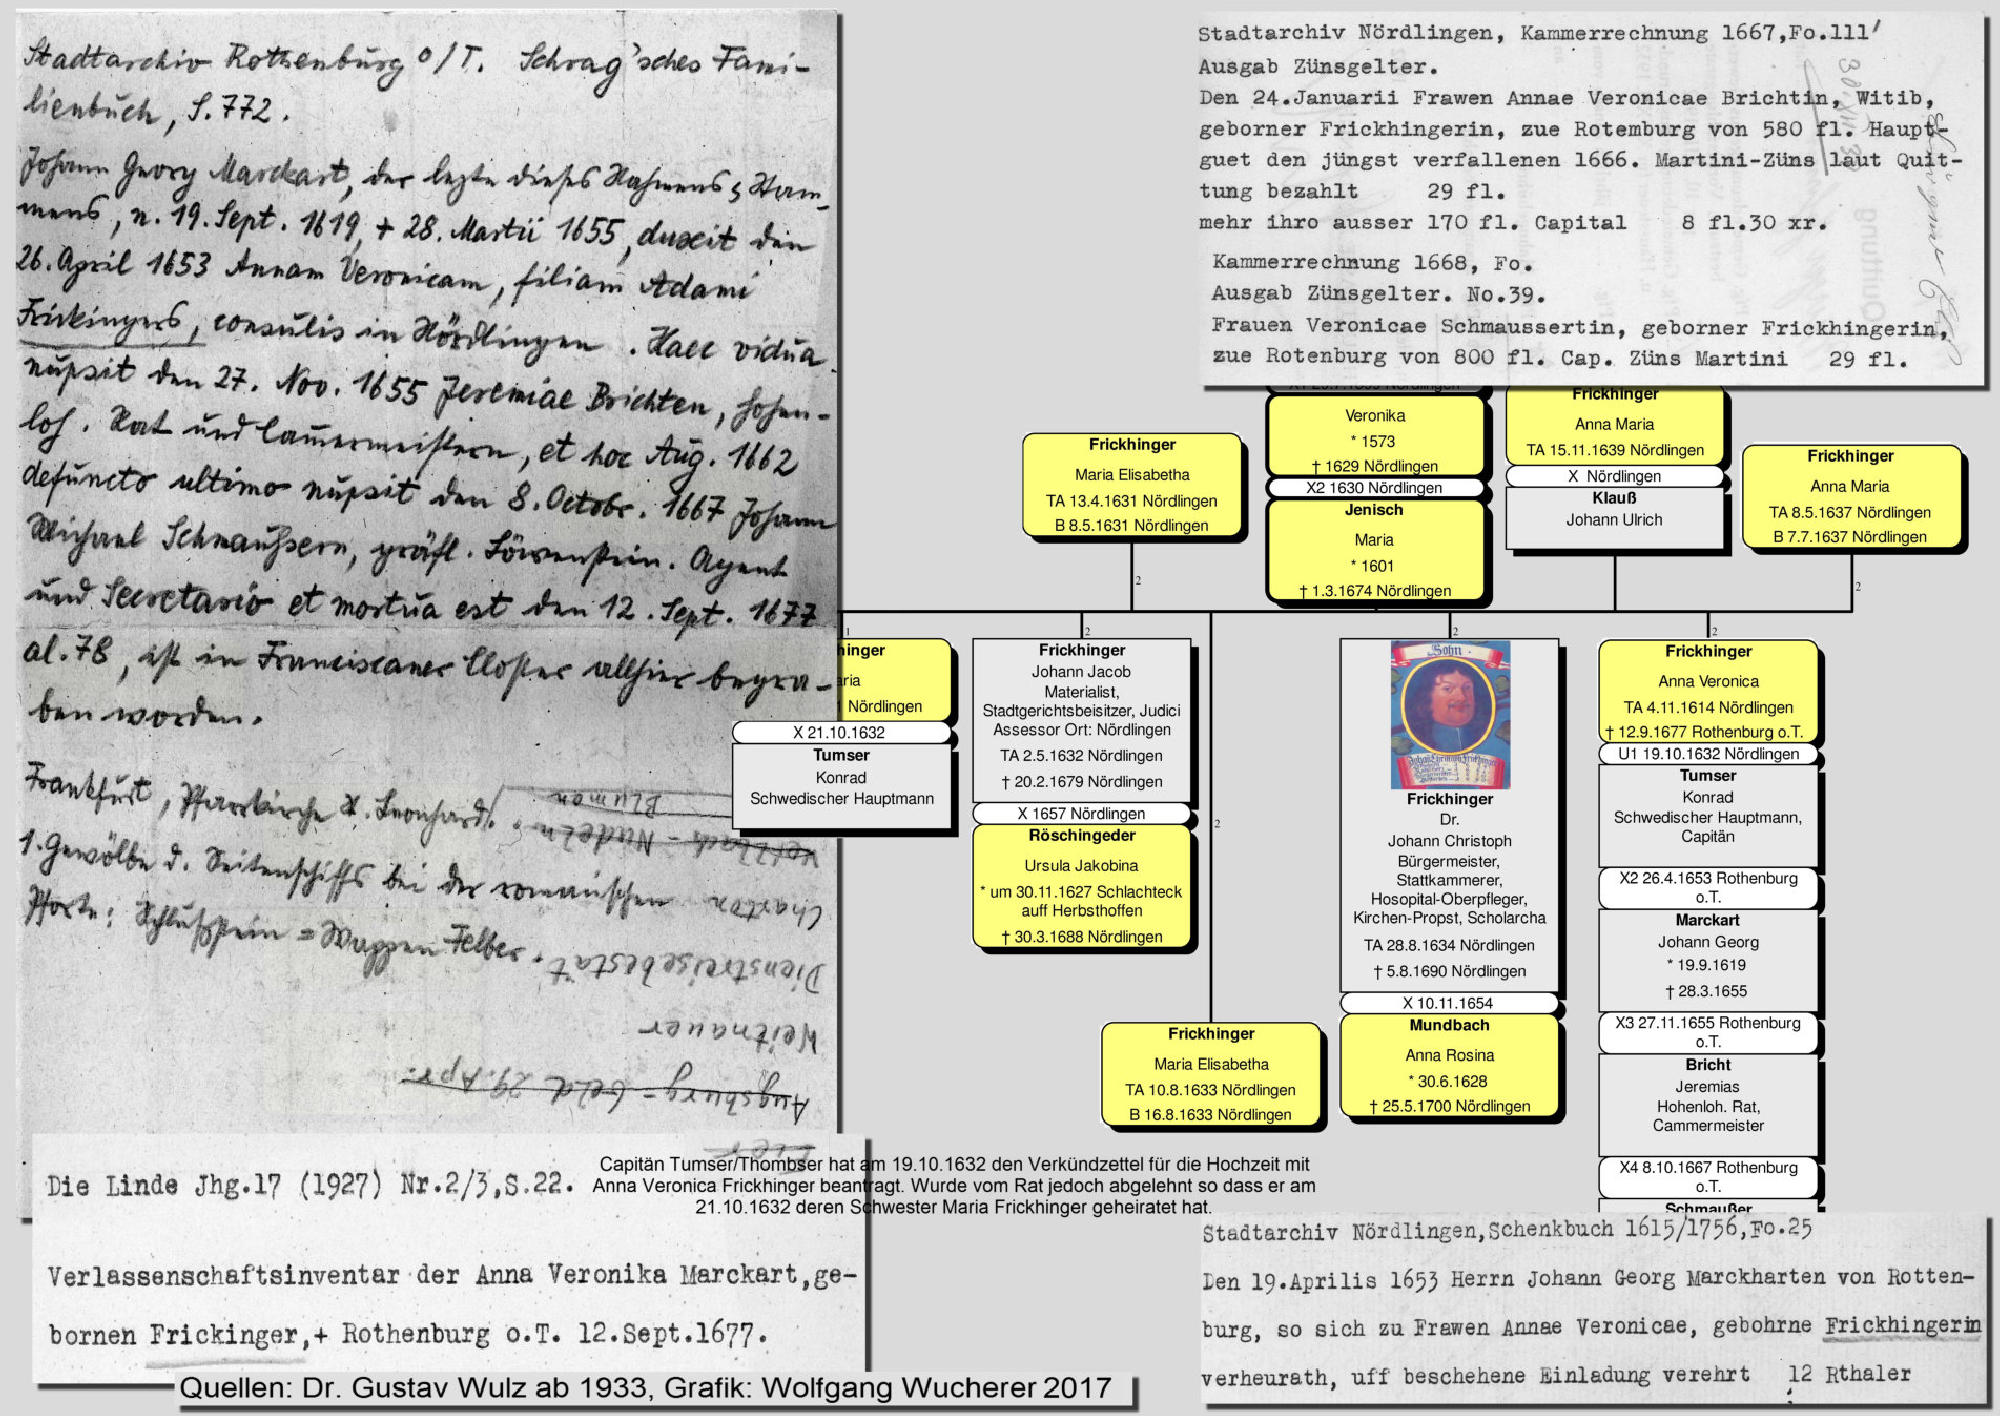 Stadtarchiv Rothenburg o/T. Schrag'sches Fami-
lienbuch, S.772.
Johann Georg Marckart, der lezte dieses Nahmens & Stam-
mens, n. 19. Sept. 1619, + 28. Martii 1655, duxit den
26. April 1653 Annam Veronicam, filiam Adami
Frickingers, consulis in Nördlingen. Haec vidua
nupsit den 27. Nov. 1655 Jeremiae Brichten, hohen-
loh. Rat und Cammermeistern, et hoc Aug. 1662
defuncto ultimo nupsit den 8. Octobr. 1667 Johann
Michael Schmaußern, gräfl. Löwenstein. Agent
und Secretario et mortua est den 12. Sept. 1677
al. 78, ist in Franciscaner Closter allhier begra-
ben worden.
Frankfurt, Pfarrkirche St. Leonhard,
1. Gewölbe d. Seitenschiffs bei der romanischen
Pforte: Schlußstein = Wappen Felber.
Blumen
Nudeln
Charton
Dienstreisebestät.
Weitnauer
Augsburg = Geld 29. Apr.
Die Linde Jhg.17 (1927) Nr.2/3,S.22.
Verlassenschaftsinventar der Anna Veronika Marckart,ge-
bornen Frickinger,+ Rothenburg o.T. 12.Sept.1677.
Quellen: Dr. Gustav Wulz ab 1933, Grafik: Wolfgang Wucherer 2017
Stadtarchiv Nördlingen, Kammerrechnung 1667,Fo.111'
Ausgab Zünsgelter.
Den 24.Januarii Frawen Annae Veronicae Brichtin, Witib,
geborner Frickhingerin, zue Rotemburg von 580 fl. Haupt-
guet den jüngst verfallenen 1666. Martini-Züns laut Quit-
tung bezahlt 29 fl.
mehr ihro ausser 170 fl. Capital 8 fl.30 xr.
Kammerrechnung 1668, Fo.
Ausgab Zünsgelter. No.39.
Frauen Veronicae Schmaussertin, geborner Frickhingerin,
zue Rotenburg von 800 fl. Cap. Züns Martini 29 fl.
Quittung
Frickhinger
Maria Elisabetha
TA 13.4.1631 Nördlingen
B 8.5.1631 Nördlingen
2
Veronika
* 1573
† 1629 Nördlingen
X2 1630 Nördlingen
Jenisch
Maria
* 1601
† 1.3.1674 Nördlingen
Frickhinger
Anna Maria
TA 15.11.1639 Nördlingen
X Nördlingen
Klauß
Johann Ulrich
Frickhinger
Anna Maria
TA 8.5.1637 Nördlingen
B 7.7.1637 Nördlingen
2
1
hinger
aria
Nördlingen
X 21.10.1632
Tumser
Konrad
Schwedischer Hauptmann
2
Frickhinger
Johann Jacob
Materialist,
Stadtgerichtsbeisitzer, Judici
Assessor Ort: Nördlingen
TA 2.5.1632 Nördlingen
† 20.2.1679 Nördlingen
X 1657 Nördlingen
Röschingeder
Ursula Jakobina
* um 30.11.1627 Schlachteck
auff Herbsthoffen
† 30.3.1688 Nördlingen
2
Frickhinger
Maria Elisabetha
TA 10.8.1633 Nördlingen
B 16.8.1633 Nördlingen
2
Sohn
Frickhinger
Dr.
Johann Christoph
Bürgermeister,
Stattkammerer,
Hosopital-Oberpfleger,
Kirchen-Propst, Scholarcha
TA 28.8.1634 Nördlingen
† 5.8.1690 Nördlingen
X 10.11.1654
Mundbach
Anna Rosina
* 30.6.1628
† 25.5.1700 Nördlingen
2
Frickhinger
Anna Veronica
TA 4.11.1614 Nördlingen
† 12.9.1677 Rothenburg o.T.
U1 19.10.1632 Nördlingen
Tumser
Konrad
Schwedischer Hauptmann,
Capitän
X2 26.4.1653 Rothenburg
o.T.
Marckart
Johann Georg
* 19.9.1619
† 28.3.1655
X3 27.11.1655 Rothenburg
o.T.
Bricht
Jeremias
Hohenloh. Rat,
Cammermeister
X4 8.10.1667 Rothenburg
o.T.
Schmaußer
Capitän Tumser/Thombser hat am 19.10.1632 den Verkündzettel für die Hochzeit mit
Anna Veronica Frickhinger beantragt. Wurde vom Rat jedoch abgelehnt so dass er am
21.10.1632 deren Schwester Maria Frickhinger geheiratet hat.
Stadtarchiv Nördlingen,Schenkbuch 1615/1756,Fo.25
Den 19.Aprilis 1653 Herrn Johann Georg Marckharten von Rotten-
burg, so sich zu Frawen Annae Veronicae, gebohrne Frickhingerin
verheurath, uff beschehene Einladung verehrt 12 Rthaler